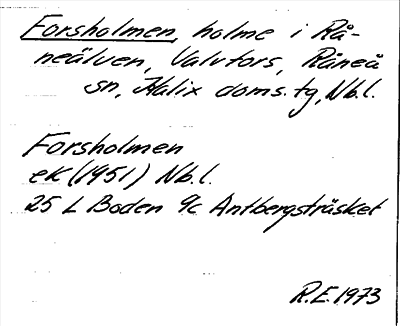 Forsholmen, holme i Rå-
neälven, Valvtors, Råneå
sn, Kalix doms. tg, Nb.l.
Forsholmen
ek (1951) Nb.l.
25 L Boden 9c Antbergsträsket
R.E. 1973